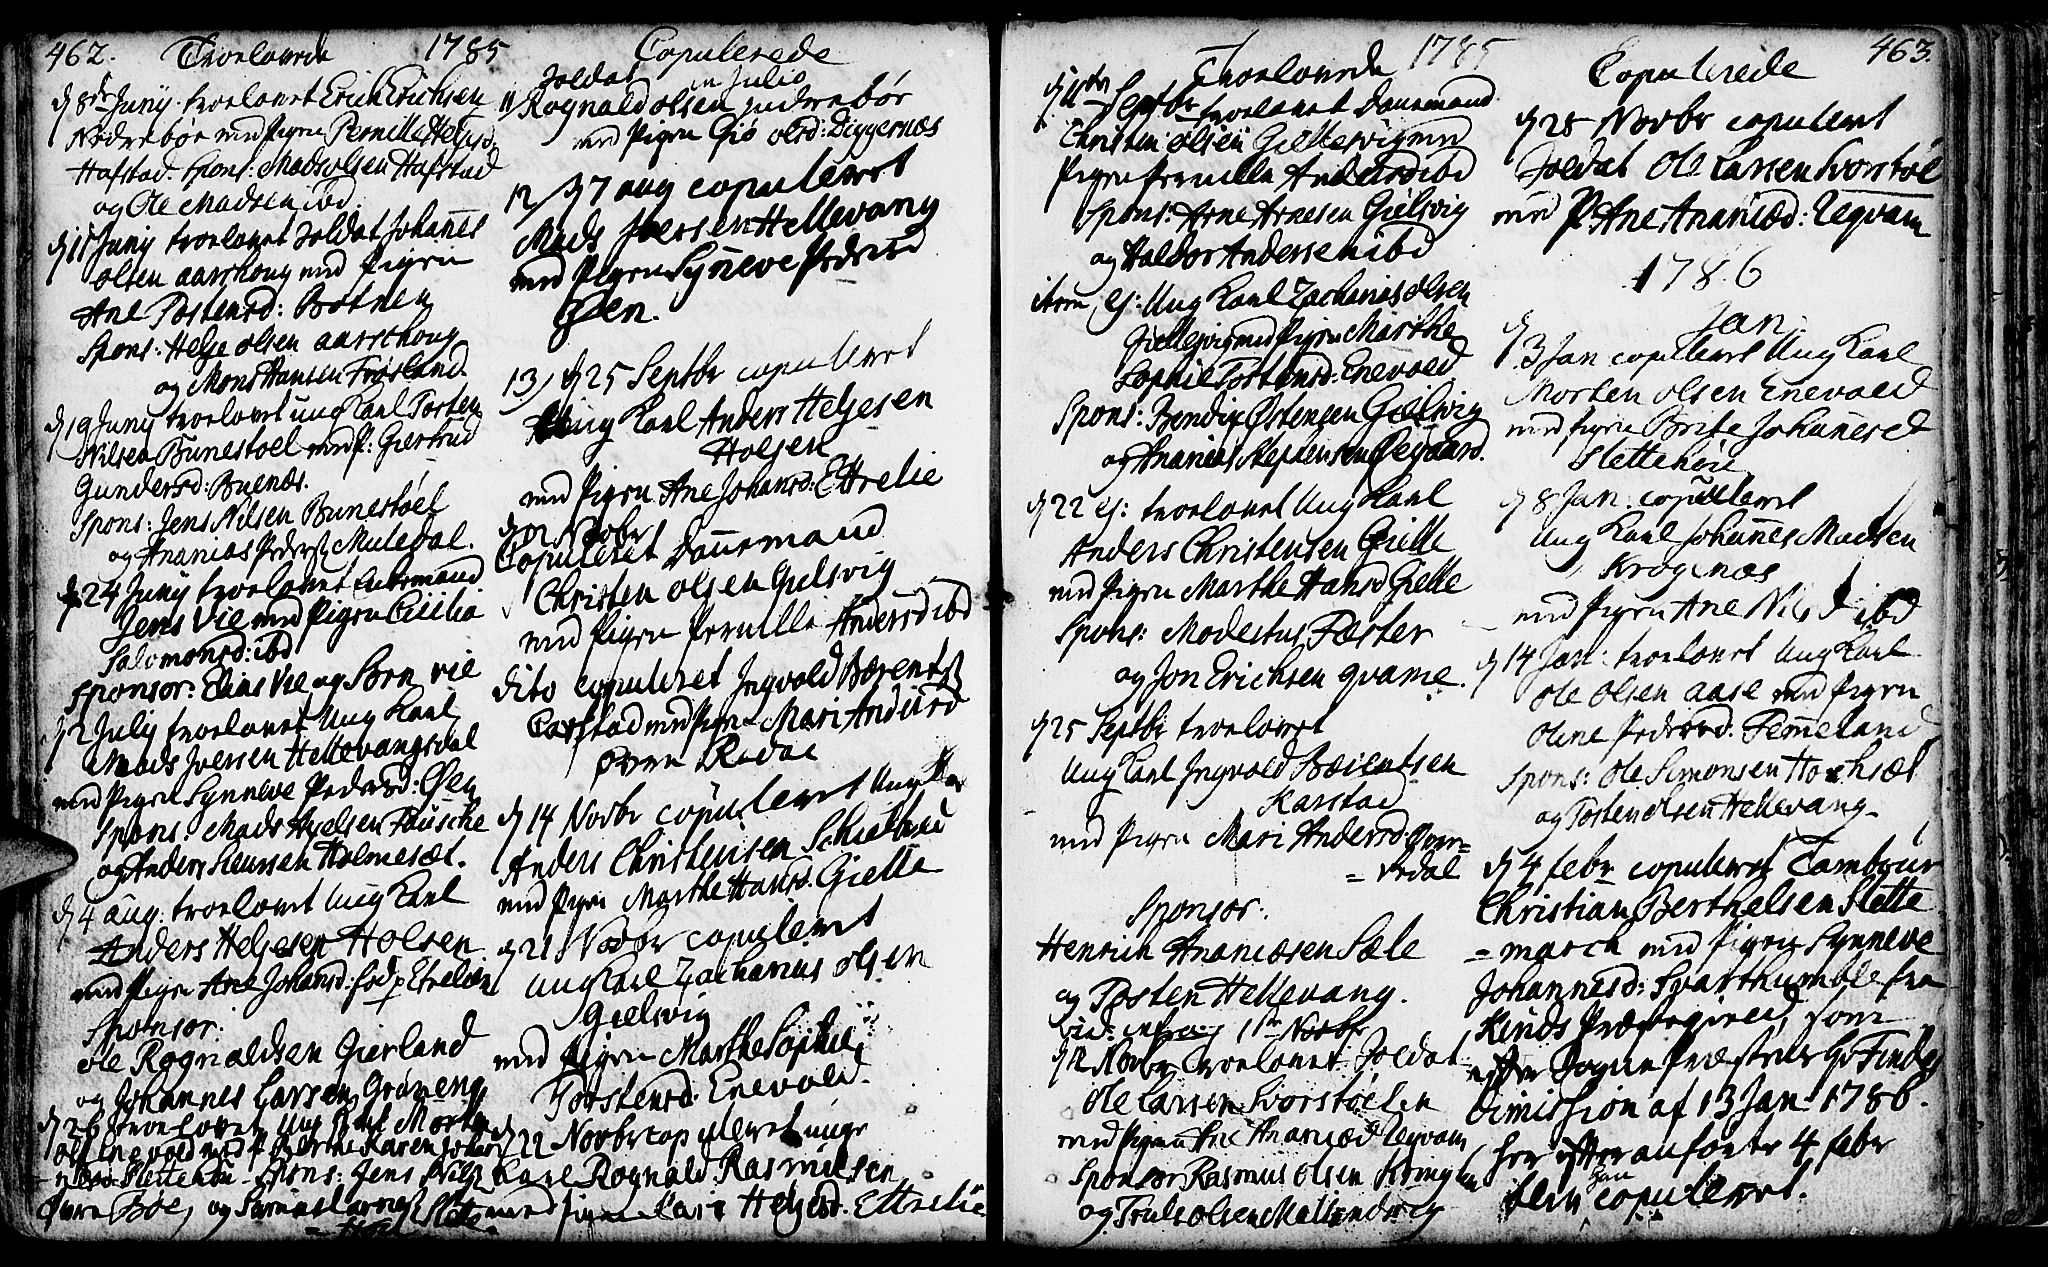 462. Troelovede 1785
d 8de Junÿ troelovet Erich Erichsen
Nedrebøe med Pigen Pernille Helgesd.
Hafstad. Spons: Mads olsen Hafstad
og Ole Madsen ibd.
d 11 Junÿ troelovet Soldat Johannes
olsen aarschoug med Pigen
Ane Tostensd: Botnen
Spons: Helge olsen aarschoug
og Mons Hansen Frøsland
d 19 Junÿ troelovet ung Karl Tosten
Nilsen Bunestøel med P: Giertrud
Gundersd: Buenæs.
Spons: Jens Nilsen Bunestøel
og Ananias Peders: Muledal.
d 24 Junÿ troelovet Enkemand
Jens Vie med Pigen Cicilia
Salomonsd: ibd
Sponsor: Elias Vie og Sørn vie
d 2 July troelovet Ung Karl
Mads Joersen Hellevangsdal
med Pigen Synneve Pedersd: Øen
Spons: Mads
og Anders Holmesæt.
d 4 aug: troelovet Ung Karl
Anders Helgesen Holsen
med Pigen Ane Johansd:
Sponsor:
Ole Rognaldsen Gierland
og Johannes Larsen Grøneng
d 26 troelovet Ung Karl Morten
ols Enevold med P
Slettehøi Spons: Jens Nils
Øvre Bøe og
Copulerede
Soldat in Julio
11/ Rognald olsen Indrebøe
med Pigen Giø olsd: Diggernæs
12/ d 7 aug copuleret
Mads Joersen Hellevang
med Pigen Synneve Pedersd
Øen.
13/ d 25 Septbr copuleret
Ung Karl Anders Helgesen
Holsen
med Pigen Ane Johansd: Ettrelie
d Novbr
Copuleret Dannemand
Christen olsen Gielsvig
med Pigen Pernille Andersd ibd
dito copuleret Ingvold Børents
Carstad med Pigen Mari Andersd
øvre Redal
d 14 Novbr copuleret Ung Kar
Anders Christensen
med Pigen Marthe Hansd: Gielle
d 21 Novbr copuleret
Ung Karl Zacharias olsen
Gielsvig
med Pigen Marthe Sophie
Torstensd: Enevold.
d 22 Novbr copuleret unge
Karl Rognald Rasmusen
med Pigen Kari Helgesd: Ettrelie
Troelovede 1785
d Septbr troelovet Dannemand
Christen olsen Giellesvig med
Pigen Pernille Andersd ibd
Spons: Arne Arnesen Gielsvig
og Haldor Andersen ibd
item ej: Ung Karl Zacharias olsen
Giellesvig med Pigen Marthe
Sophie Tostensd: Enevold
Spons: Bendix Østensen Gielsvig
og Ananias Stephensen Øegaard.
d 22 ej: troelovet Ung Karl
Anders Christensen Gielle
med Pigen Marthe Hansd Gielle
Spons: Modestus Foster
og Jon Erichsen qvame.
d 25 Septbr troelovet
Ung Karl Ingvold Børentsen
Karstad
med Pigen Mari Andersd: Øvre=
=Redal
Sponsor:
Henrich Ananiæsen Sæle
og Tosten Hellevang.
vid: infra 1ste Novbr
d 12 Novbr troelovet Soldat
Ole Larsen Svorstøelen
med Pigen Ane Ananiæd Uqvam
Sponsor Rasmus olsen Kringlen
og Truls olsen
Copulerede 463.
d 25 Novbr copuleret
Soldat Ole Larsen Svorstøl
med P: Ane Ananiæd: Uqvam
1786
Jan
d 3 Jan copuleret Ung Karl
Morten olsen Enevold
med Pigen Brite Johannesd
Slettehøi
d 8 Jan: copuleret
Ung Karl Johannes Madsen
Krogenæs
med Pigen Ane Nilsd ibd
d 14 Jan: troelovet Ung Karl
Ole olsen aase med Pigen
Oline Pedersd: Femeland
Spons: Ole Simonsen Hochsæt
og Tosten olsen Hellevang
d 4 febr copuleret Tambour
Christian Berthelsen Slette
=march med Pigen Synneve
Johannesd: Svarthumble fra
Kinds Præstegield, som
efter Sogne Præstens Hr Finds
Dimission af 13 Jan 1786.
her efter anførte 4 febr
blev han copuleret.